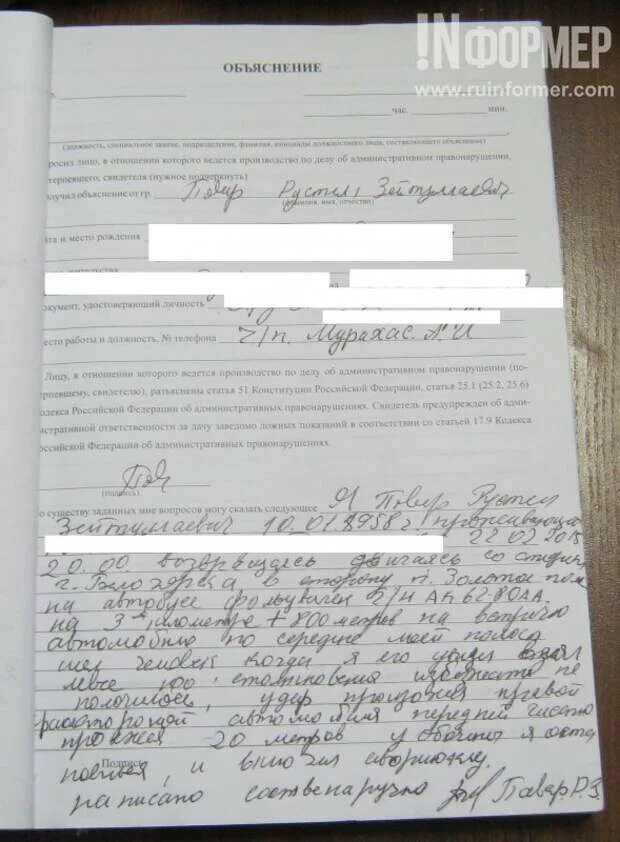 !NФОРМЕР
www.ruinformer.com
ОБЪЯСНЕНИЕ
час. мин.
(должность, специальное звание, подразделение, фамилия, инициалы должностного лица, составившего объяснение)
росил лицо, в отношении которого ведется производство по делу об административном правонарушении,
терпевшего, свидетеля (нужное подчеркнуть)
лучил объяснение от гр. Павер Рустем Зейтулаевич
(фамилия, имя, отчество)
ата и место рождения
окумент, удостоверяющий личность
есто работы и должность, № телефона Ч/п. Мурахас. А.И
Лицу, в отношении которого ведется производство по делу об административном правонарушении (по-
терпевшему, свидетелю), разъяснены статья 51 Конституции Российской Федерации, статья 25.1 (25.2, 25.6)
одекса Российской Федерации об административных правонарушениях. Свидетель предупрежден об адми-
истративной ответственности за дачу заведомо ложных показаний в соответствии со статьей 17.9 Кодекса
оссийской Федерации об административных правонарушениях.
(подпись)
о существу заданных мне вопросов могу сказать следующее Я Павер Рустем
Зейтулаевич 10.01.1958г проживающий
22 02 2015
20.00 возвращаясь двигаясь со
г. Белогорска в сторону п. Золотое поле
на автобусе фольцваген г/н АК 62-80АА
на 3 километре + 800 метров на встречю
автомобилю по середине моей полосы
шел человек когда я его уведел
столкновения избежать не
получилось, удар произошел правой
стороной автомобиля передней частю
проехал 20 метров у обочины я оста
новился, и включил аварийку.
Подпись
написано собственаручно Павер Р.З.